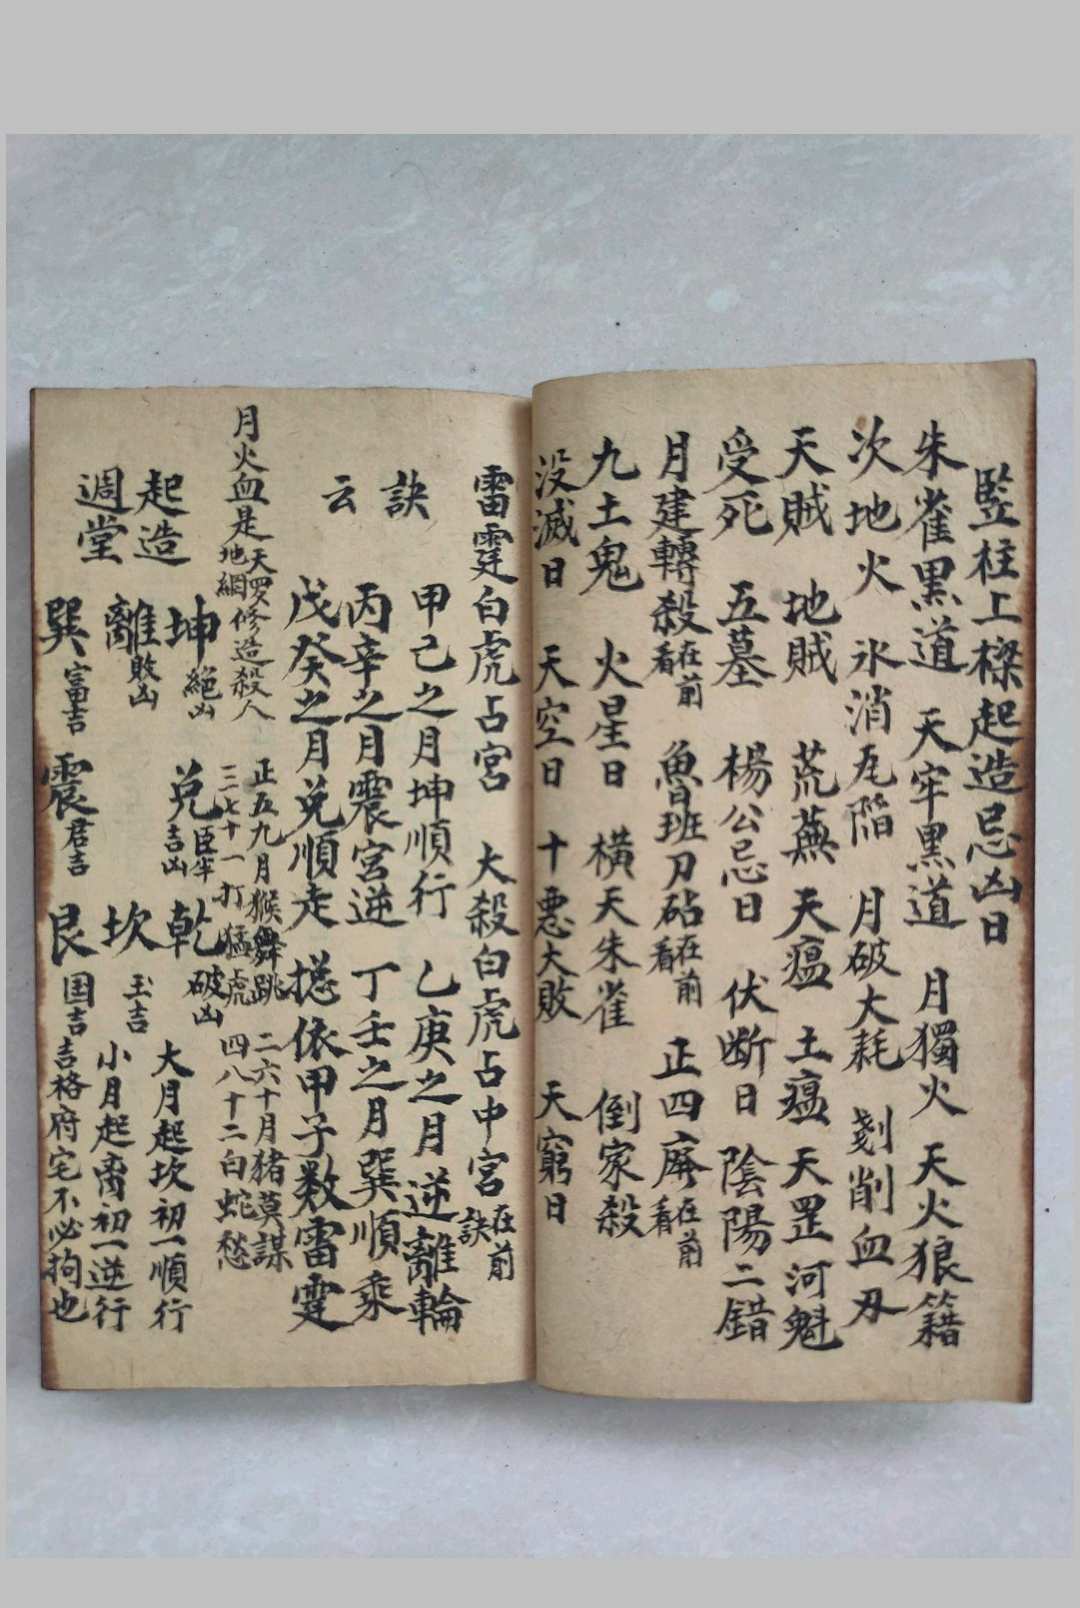 竪柱上樑起造忌凶日
朱雀黑道 天牢黑道 月獨火 天火狼籍
次地火 氷消瓦階 月破大耗 剗削血刃
天賊 地賊 荒蕪 天瘟 土瘟 天罡河魁
受死 五墓 楊公忌日 伏断日 陰陽二錯
月建轉殺在前看 魯班刀砧在前看 正四廃在前看
九土鬼 火星日 橫天朱雀 倒家殺
没滅日 天空日 十悪大敗 天窮日
雷霆白虎占宮 大殺白虎占中宮在前
訣
訣 甲己之月坤順行 乙庚之月逆離輪
云 丙辛之月震宮逆 丁壬之月巽順乘
戊癸之月兑順走 摠依甲子数雷霆
月火血是天罗地網修造殺人 正五九月猴舞跳 二六十月猪莫謀
三七十一打猛虎 四八十二白蛇愁
起造 坤絕凶 兑臣牢吉凶 乾破凶 大月起坎初一順行
週堂 離敗凶 坎玉吉 小月起离初一逆行
巽富吉 震君吉 艮国吉 吉格府宅不必拘也